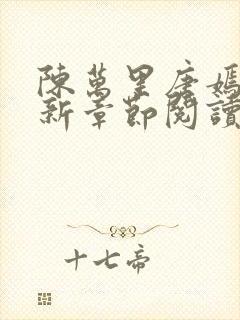 陳萬里唐嫣
新章節閱讀
十七帝